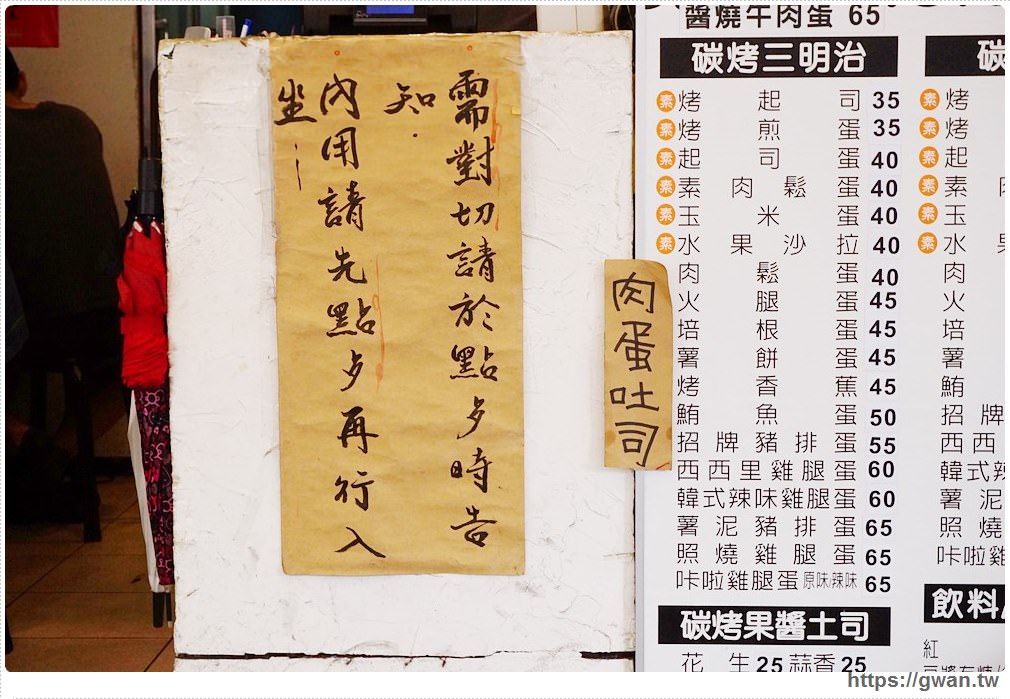 需對切請於點歺時告
知.
內用請先點歺再行入
坐
肉蛋吐司
醬燒牛肉蛋 65
碳烤三明治
素 烤起司 35
素 烤煎蛋 35
素 起司蛋 40
素 素肉鬆蛋 40
素 玉米蛋 40
素 水果沙拉 40
肉鬆蛋 40
火腿蛋 45
培根蛋 45
薯餅蛋 45
烤香蕉 45
鮪魚蛋 50
招牌豬排蛋 55
西西里雞腿蛋 60
韓式辣味雞腿蛋 60
薯泥豬排蛋 65
照燒雞腿蛋 65
咔啦雞腿蛋 原味/辣味 65
碳烤果醬土司
花生 25 蒜香 25
碳
素 烤
素 烤
素 起
素 素
素 玉
素 水
肉
火
培
薯
鮪
招牌
西西
韓式
薯泥
照燒
咔啦
飲料
紅
https://gwan.tw